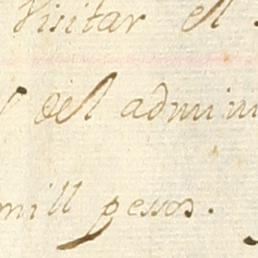 Visitar el
del admini
mill pessos.